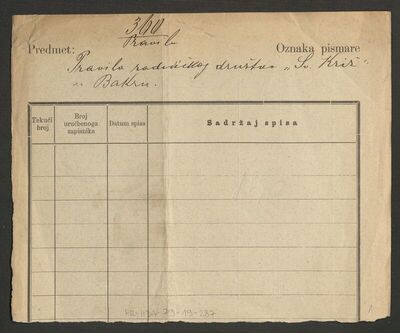 360
Pravila
Predmet:
Oznaka pismare
Pravila radničkog društva „Sv. Križ“
u Bakru.
Tekući broj
Broj uručbenoga zapisnika
Datum spisa
Sadržaj spisa
79-19-287
1